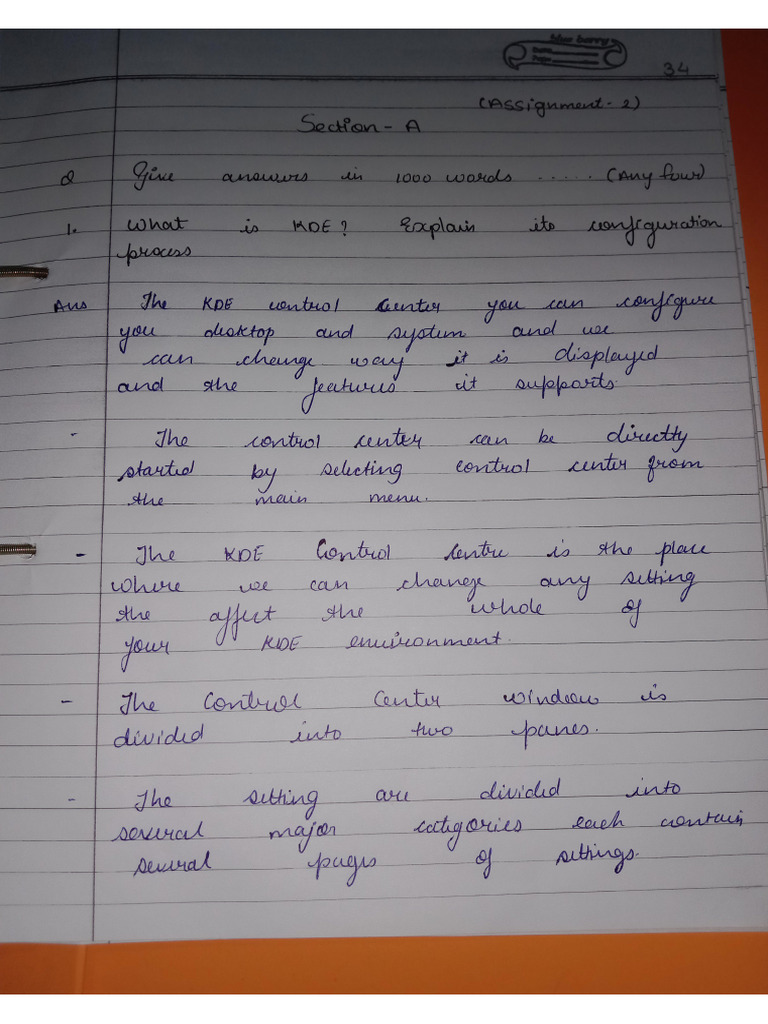 34
(Assignment-2)
Section - A
Q Give answers in 1000 words ..... (Any four)
1. What is KDE? Explain its configuration
process
Ans The KDE control Center you can configure
you desktop and system and we
can change way it is displayed
and the features it supports.
- The control center can be directly
started by selecting control center from
the main menu.
- The KDE Control Centre is the place
where we can change any setting
the affect the whole of
your KDE environment.
- The Control Center window is
divided into two panes.
- The setting are divided into
several major categories each contain
several pages of settings.